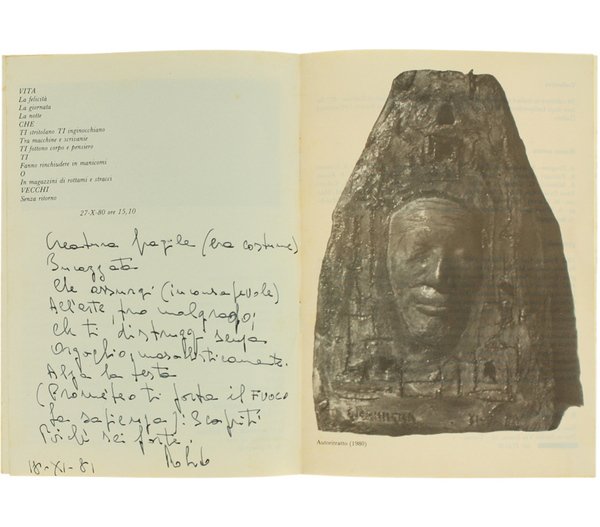 VITA
La felicità
La giornata
La notte
CHE
TI stritolano TI inginocchiano
Tra macchine e scrivanie
TI fottono corpo e pensiero
TI
Fanno rinchiudere in manicomi
O
In magazzini di rottami e stracci
VECCHI
Senza ritorno
27-X-80 ore 15,10
Creatura fragile (era costume)
Che assurgi (inconsapevole)
All'arte, tuo malgrado,
Che ti distruggi senza
Orgoglio, masochisticamente.
Alza la testa
(Prometeo ti porta il FUOCO
La sapienza): Scopriti
Poiché sei forte.
18-XI-81
Autoritratto (1980)